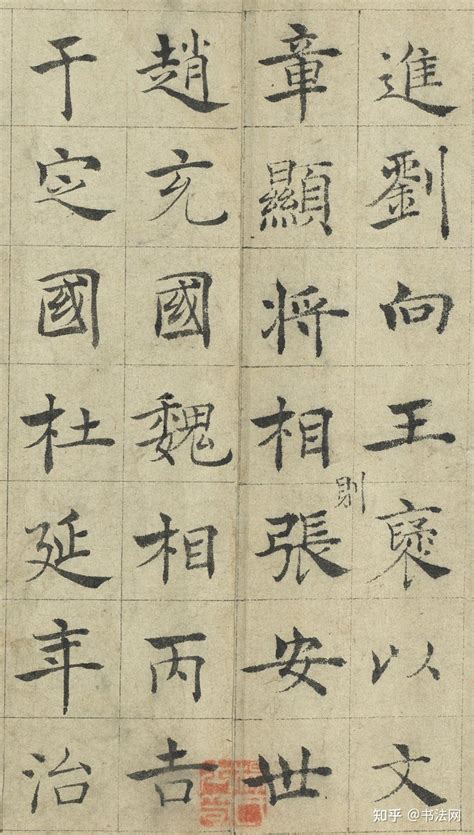 進劉向王襃以文
章顯將相張安世
則
趙充國魏相丙吉
于定國杜延年治
知乎 @书法网